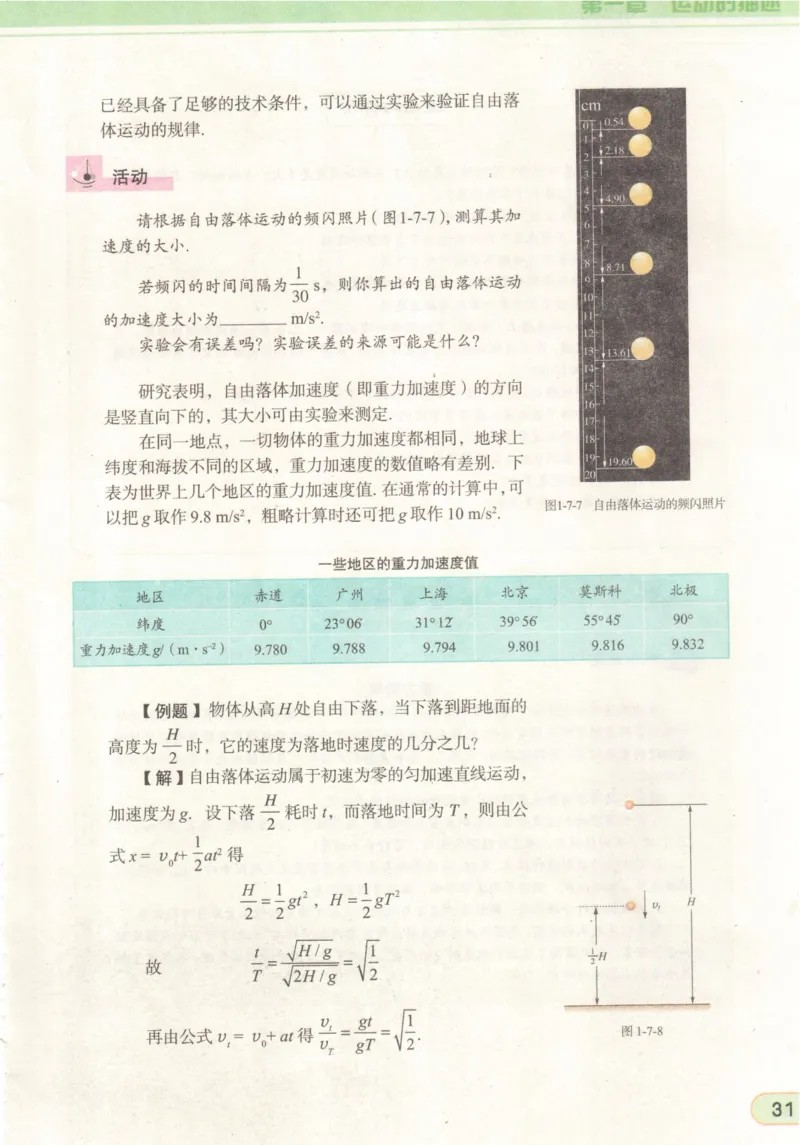 第一章 运动的描述
已经具备了足够的技术条件，可以通过实验来验证自由落
体运动的规律.
活动
请根据自由落体运动的频闪照片(图1-7-7),测算其加
速度的大小.
若频闪的时间间隔为 1/30 s，则你算出的自由落体运动
的加速度大小为________ m/s².
实验会有误差吗？实验误差的来源可能是什么？
研究表明，自由落体加速度（即重力加速度）的方向
是竖直向下的，其大小可由实验来测定.
在同一地点，一切物体的重力加速度都相同，地球上
纬度和海拔不同的区域，重力加速度的数值略有差别. 下
表为世界上几个地区的重力加速度值.在通常的计算中,可
以把g取作9.8 m/s²，粗略计算时还可把g取作10 m/s².
cm
0 0.54
1
2 2.18
3
4 4.90
5
6
7
8 8.71
9
10
11
12
13 13.61
14
15
16
17
18
19 19.60
20
图1-7-7 自由落体运动的频闪照片
一些地区的重力加速度值
地区 赤道 广州 上海 北京 莫斯科 北极
纬度 0° 23°06′ 31°12′ 39°56′ 55°45′ 90°
重力加速度g/（m·s⁻²） 9.780 9.788 9.794 9.801 9.816 9.832
【例题】物体从高H处自由下落，当下落到距地面的
高度为 H/2 时，它的速度为落地时速度的几分之几？
【解】自由落体运动属于初速为零的匀加速直线运动，
加速度为g. 设下落 H/2 耗时t，而落地时间为T，则由公
式x= v₀t+ 1/2 at² 得
H/2 = 1/2 gt²，H= 1/2 gT²
故 t/T = √(H/g)/√(2H/g) = √(1/2)
再由公式 v_t= v₀+at 得 v_t/v_T = gt/gT = √(1/2).
v_t
H
1/2 H
图1-7-8
31